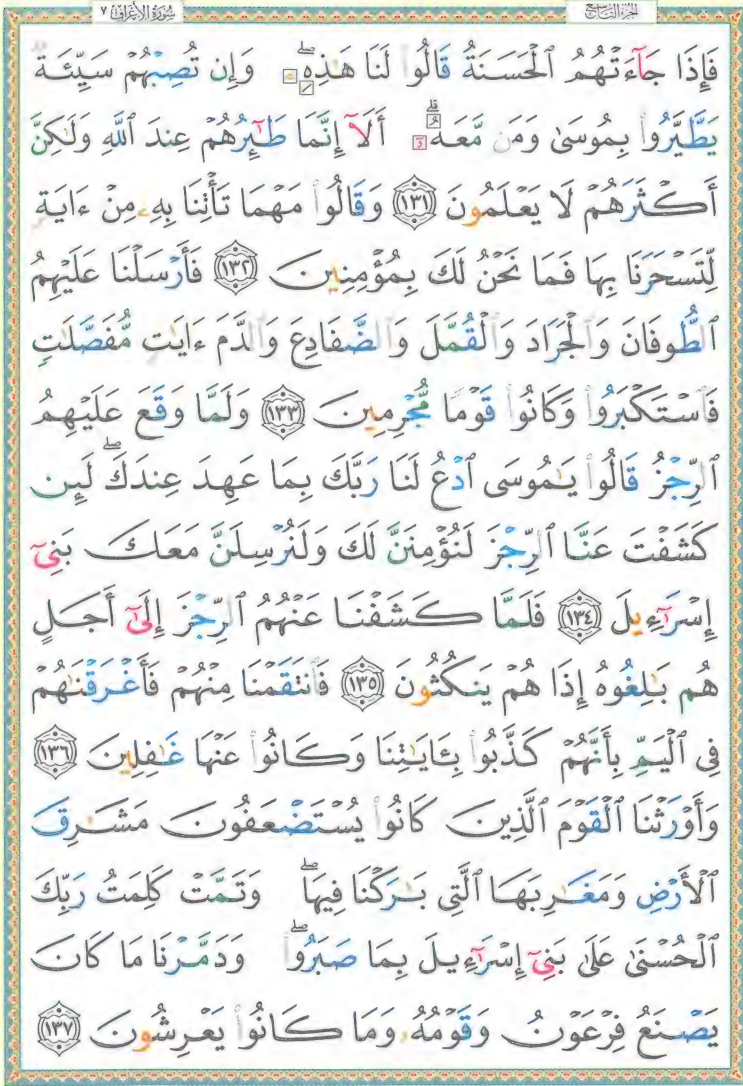 سُورَةُ الأَعْرَافِ ٧
الجُزْءُ التَّاسِعُ
فَإِذَا جَآءَتْهُمُ ٱلْحَسَنَةُ قَالُوا۟ لَنَا هَٰذِهِۦۖ وَإِن تُصِبْهُمْ سَيِّئَةٌ
يَطَّيَّرُوا۟ بِمُوسَىٰ وَمَن مَّعَهُۥٓۗ أَلَآ إِنَّمَا طَٰٓئِرُهُمْ عِندَ ٱللَّهِ وَلَٰكِنَّ
أَكْثَرَهُمْ لَا يَعْلَمُونَ ١٣١ وَقَالُوا۟ مَهْمَا تَأْتِنَا بِهِۦ مِنْ ءَايَةٍ
لِّتَسْحَرَنَا بِهَا فَمَا نَحْنُ لَكَ بِمُؤْمِنِينَ ١٣٢ فَأَرْسَلْنَا عَلَيْهِمُ
ٱلطُّوفَانَ وَٱلْجَرَادَ وَٱلْقُمَّلَ وَٱلضَّفَادِعَ وَٱلدَّمَ ءَايَٰتٍ مُّفَصَّلَٰتٍ
فَٱسْتَكْبَرُوا۟ وَكَانُوا۟ قَوْمًا مُّجْرِمِينَ ١٣٣ وَلَمَّا وَقَعَ عَلَيْهِمُ
ٱلرِّجْزُ قَالُوا۟ يَٰمُوسَى ٱدْعُ لَنَا رَبَّكَ بِمَا عَهِدَ عِندَكَۖ لَئِن
كَشَفْتَ عَنَّا ٱلرِّجْزَ لَنُؤْمِنَنَّ لَكَ وَلَنُرْسِلَنَّ مَعَكَ بَنِىٓ
إِسْرَٰٓءِيلَ ١٣٤ فَلَمَّا كَشَفْنَا عَنْهُمُ ٱلرِّجْزَ إِلَىٰٓ أَجَلٍ
هُم بَٰلِغُوهُ إِذَا هُمْ يَنكُثُونَ ١٣٥ فَٱنتَقَمْنَا مِنْهُمْ فَأَغْرَقْنَٰهُمْ
فِى ٱلْيَمِّ بِأَنَّهُمْ كَذَّبُوا۟ بِـَٔايَٰتِنَا وَكَانُوا۟ عَنْهَا غَٰفِلِينَ ١٣٦
وَأَوْرَثْنَا ٱلْقَوْمَ ٱلَّذِينَ كَانُوا۟ يُسْتَضْعَفُونَ مَشَٰرِقَ
ٱلْأَرْضِ وَمَغَٰرِبَهَا ٱلَّتِى بَٰرَكْنَا فِيهَاۖ وَتَمَّتْ كَلِمَتُ رَبِّكَ
ٱلْحُسْنَىٰ عَلَىٰ بَنِىٓ إِسْرَٰٓءِيلَ بِمَا صَبَرُوا۟ۖ وَدَمَّرْنَا مَا كَانَ
يَصْنَعُ فِرْعَوْنُ وَقَوْمُهُۥ وَمَا كَانُوا۟ يَعْرِشُونَ ١٣٧